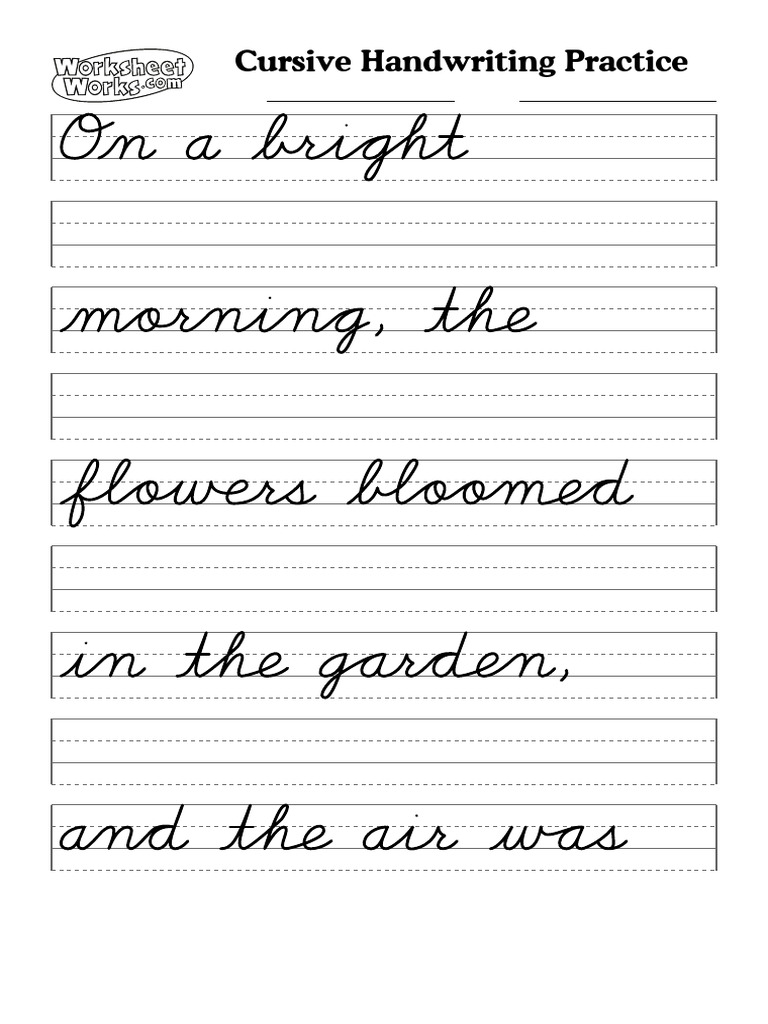 Worksheet
Works.com
Cursive Handwriting Practice
On a bright
morning, the
flowers bloomed
in the garden,
and the air was